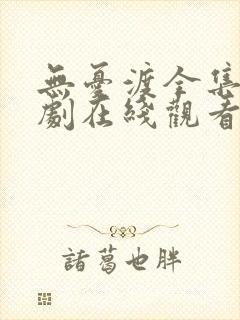 無憂渡全集
劇在綫觀看
諸葛也胖